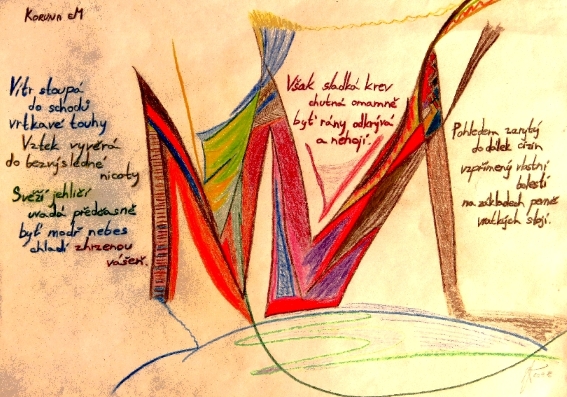 KORUNA eM
Vítr stoupá
do schodů
vrtkavé touhy
Vztek vyvěrá
do bezvýsledné
nicoty
Svěží jehličí
uvadá předčasně
byť modř nebes
chladí zhrzenou
vášeň.
Však sladká krev
chutná omamně
byť rány odkrývá
a nehojí.
Pohledem zarytý
do dálek cizin
vzpřímený vlastní
bolestí
na základech pevně
vratkých stojí.